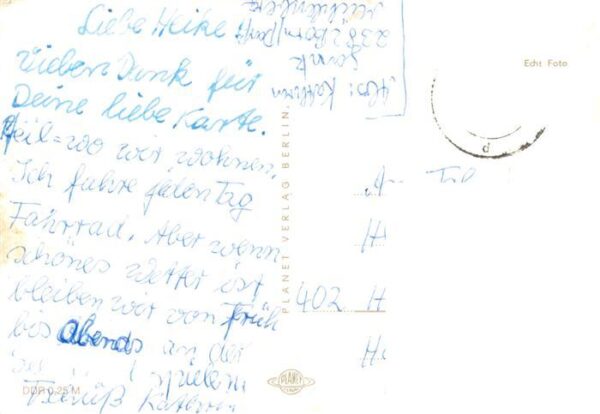 Liebe Heike
vielen Dank für
Deine liebe Karte.
Pfeil=wo wir wohnen.
Ich fahre jeden Tag
Fahrrad. Aber wenn
schönes Wetter ist
bleiben wir von früh
bis abends an der
spielen
Kathrin
Abs: Kathrin
2382 Born/Darß
PLANET VERLAG BERLIN.
Echt Foto
402 H
H
H
DDR 0,25 M
PLANET